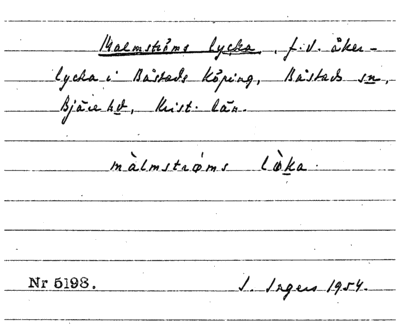 Malmströms lycka, f.d. åker-
lycka i Båstads köping, Båstads sn,
Bjäre hd, Krist. län.
màlmstrøms lø̀ka.
Nr 5198. I. Ingers 1954.